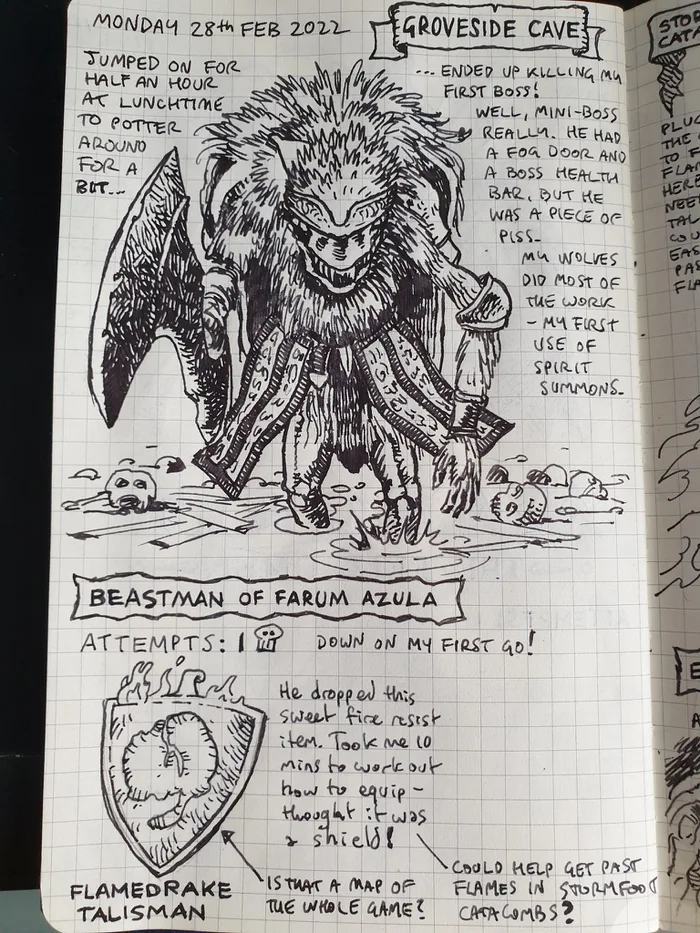 MONDAY 28TH FEB 2022
GROVESIDE CAVE
JUMPED ON FOR
HALF AN HOUR
AT LUNCHTIME
TO POTTER
AROUND
FOR A
BIT...
... ENDED UP KILLING MY
FIRST BOSS!
WELL, MINI-BOSS
REALLY. HE HAD
A FOG DOOR AND
A BOSS HEALTH
BAR, BUT HE
WAS A PIECE OF
PISS.
MY WOLVES
DID MOST OF
THE WORK
- MY FIRST
USE OF
SPIRIT
SUMMONS.
BEASTMAN OF FARUM AZULA
ATTEMPTS: 1 DOWN ON MY FIRST GO!
He dropped this
sweet fire resist
item. Took me 10
mins to work out
how to equip -
thought it was
a shield!
FLAMEDRAKE
TALISMAN
IS THAT A MAP OF
THE WHOLE GAME?
COULD HELP GET PAST
FLAMES IN STORMFOOT
CATACOMBS?